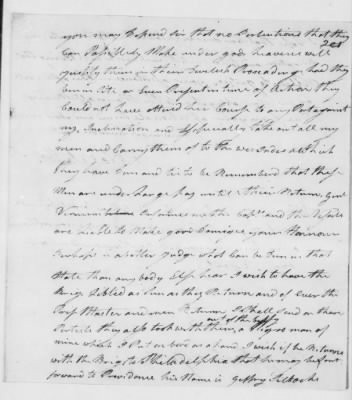 you may depend Sir that no Pretentions that they
Can Possibly Make under gods heavens will
justify them in their Proceedings had they
been in site or been Present in time of Action they
Could not have altered her Course to any
my Inclination and Especially take out all my
men and Carry them of to the west Indies all which
they have Done and tis to be Remembered that these
Men are under Large Pay until their Return,
informes me the Capt and the
are Liable to Make good Damages your Honnour
Perhaps is a better judge what Can be Done in that
State than any body Else hear I wish to have the
Brig Libled as Soon as they Return and if Ever the
Prize Master and men Return I Shall Send on their
Protests they also took with them, a Negro man of
mine which I Put on board as a hand I wish if he Returns
with the Brig to Philadelphia that he may be Sent
forward to Providence his Name is